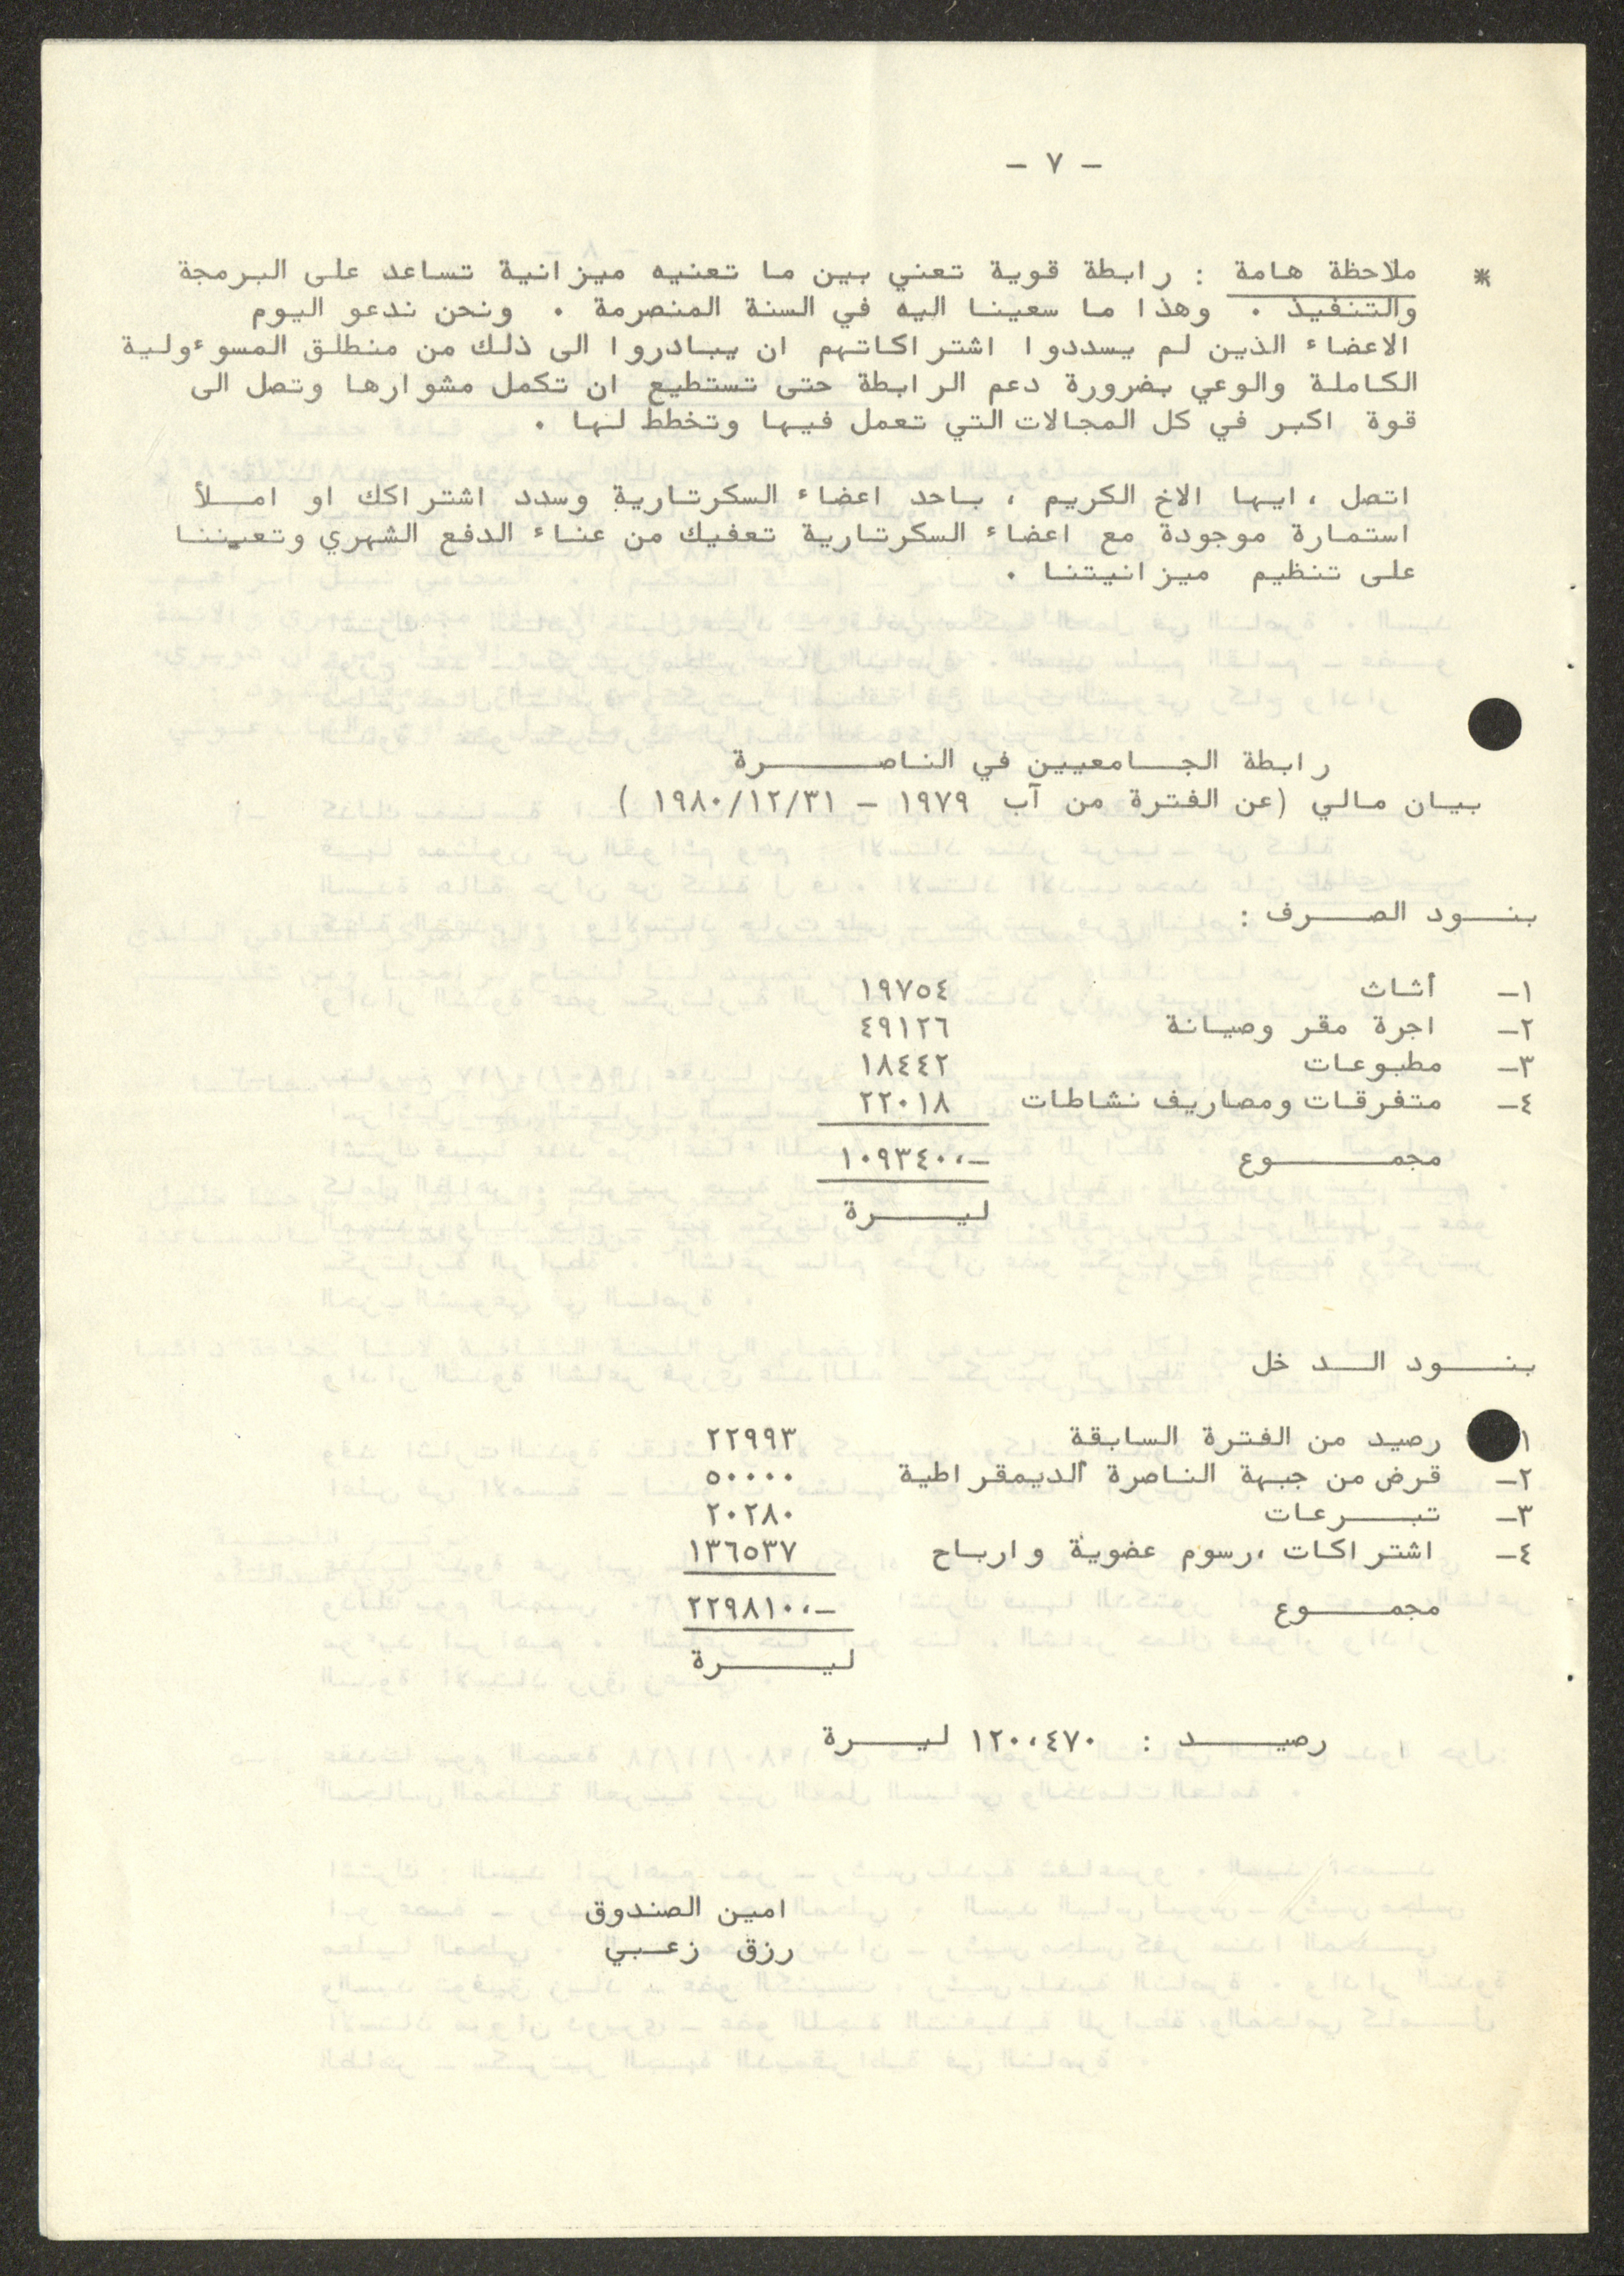 - ٧ -
* ملاحظة هامة : رابطة قوية تعني بين ما تعنيه ميزانية تساعد على البرمجة
والتنفيذ . وهذا ما سعينا اليه في السنة المنصرمة . ونحن ندعو اليوم
الاعضاء الذين لم يسددوا اشتراكاتهم ان يبادروا الى ذلك من منطلق المسوءولية
الكاملة والوعي بضرورة دعم الرابطة حتى تستطيع ان تكمل مشوارها وتصل الى
قوة اكبر في كل المجالات التي تعمل فيها وتخطط لها .
اتصل ، ايها الاخ الكريم ، باحد اعضاء السكرتارية وسدد اشتراكك او املأ
استمارة موجودة مع اعضاء السكرتارية تعفيك من عناء الدفع الشهري وتعيننا
على تنظيم ميزانيتنا .
رابطة الجامعيين في الناصرة
بيان مالي (عن الفترة من آب ١٩٧٩ - ١٩٨٠/١٢/٣١ )
بنود الصرف :
١- أثاث ١٩٧٥٤
٢- اجرة مقر وصيانة ٤٩١٢٦
٣- مطبوعات ١٨٤٤٢
٤- متفرقات ومصاريف نشاطات ٢٢٠١٨
مجموع ١٠٩٣٤٠،-
ليرة
بنود الدخل
١ رصيد من الفترة السابقة ٢٢٩٩٣
٢- قرض من جبهة الناصرة الديمقراطية ٥٠٠٠٠
٣- تبرعات ٢٠٢٨٠
٤- اشتراكات ،رسوم عضوية وارباح ١٣٦٥٣٧
مجموع ٢٢٩٨١٠،-
ليرة
رصيد : ١٢٠،٤٧٠ ليرة
امين الصندوق
رزق زعبي